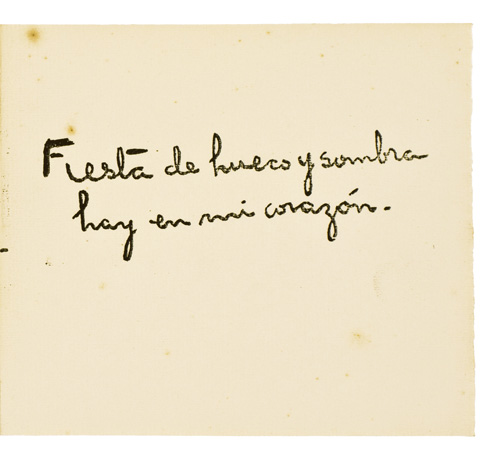 Fiesta de hueco y sombra
hay en mi corazón.